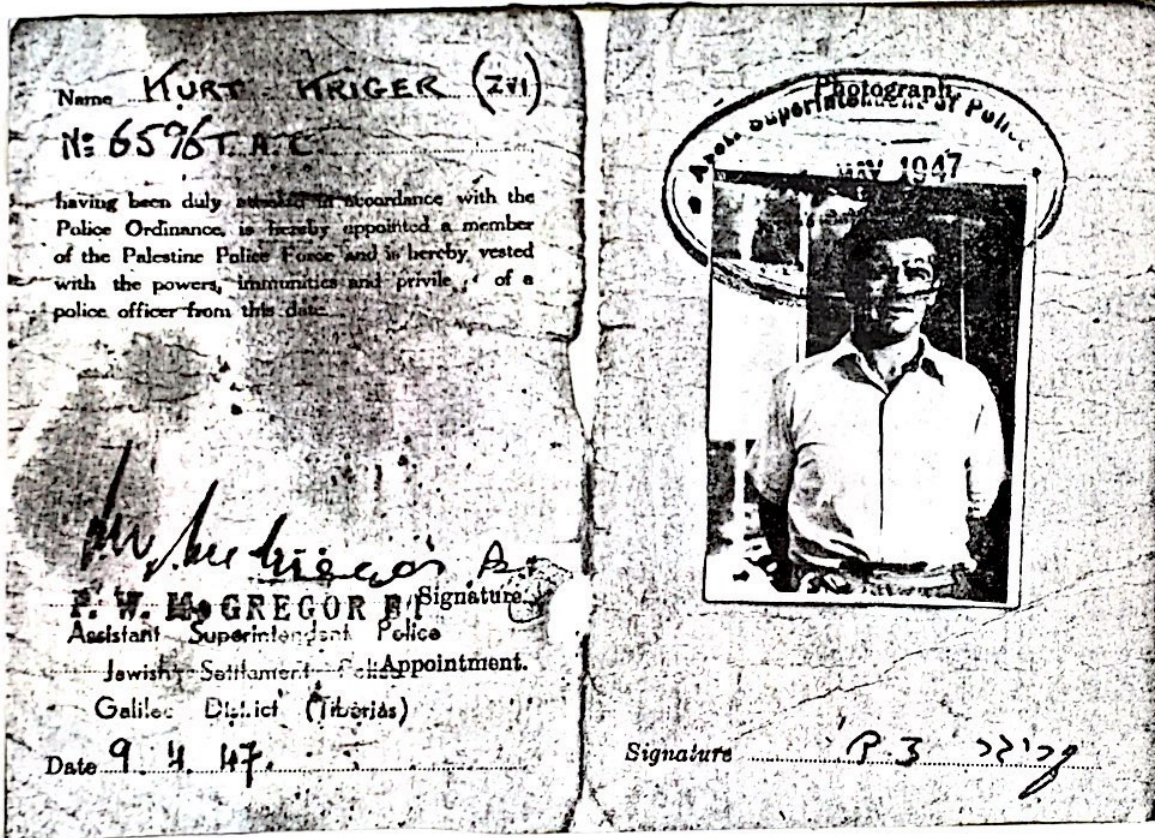 Name KURT KRIGER (ZVI)
No: 6596 T.A.C.
having been duly in accordance with the
Police Ordinance, is hereby appointed a member
of the Palestine Police Force and is hereby vested
with the powers, immunities and of a
police officer from this date.
W. McGREGOR
Signature.
Assistant Superintendent Police
Jewish Settlement
Appointment.
Galilee District (Tiberias)
Date 9. 4. 47.
Photograph.
Superintendent of Police
1947
Signature